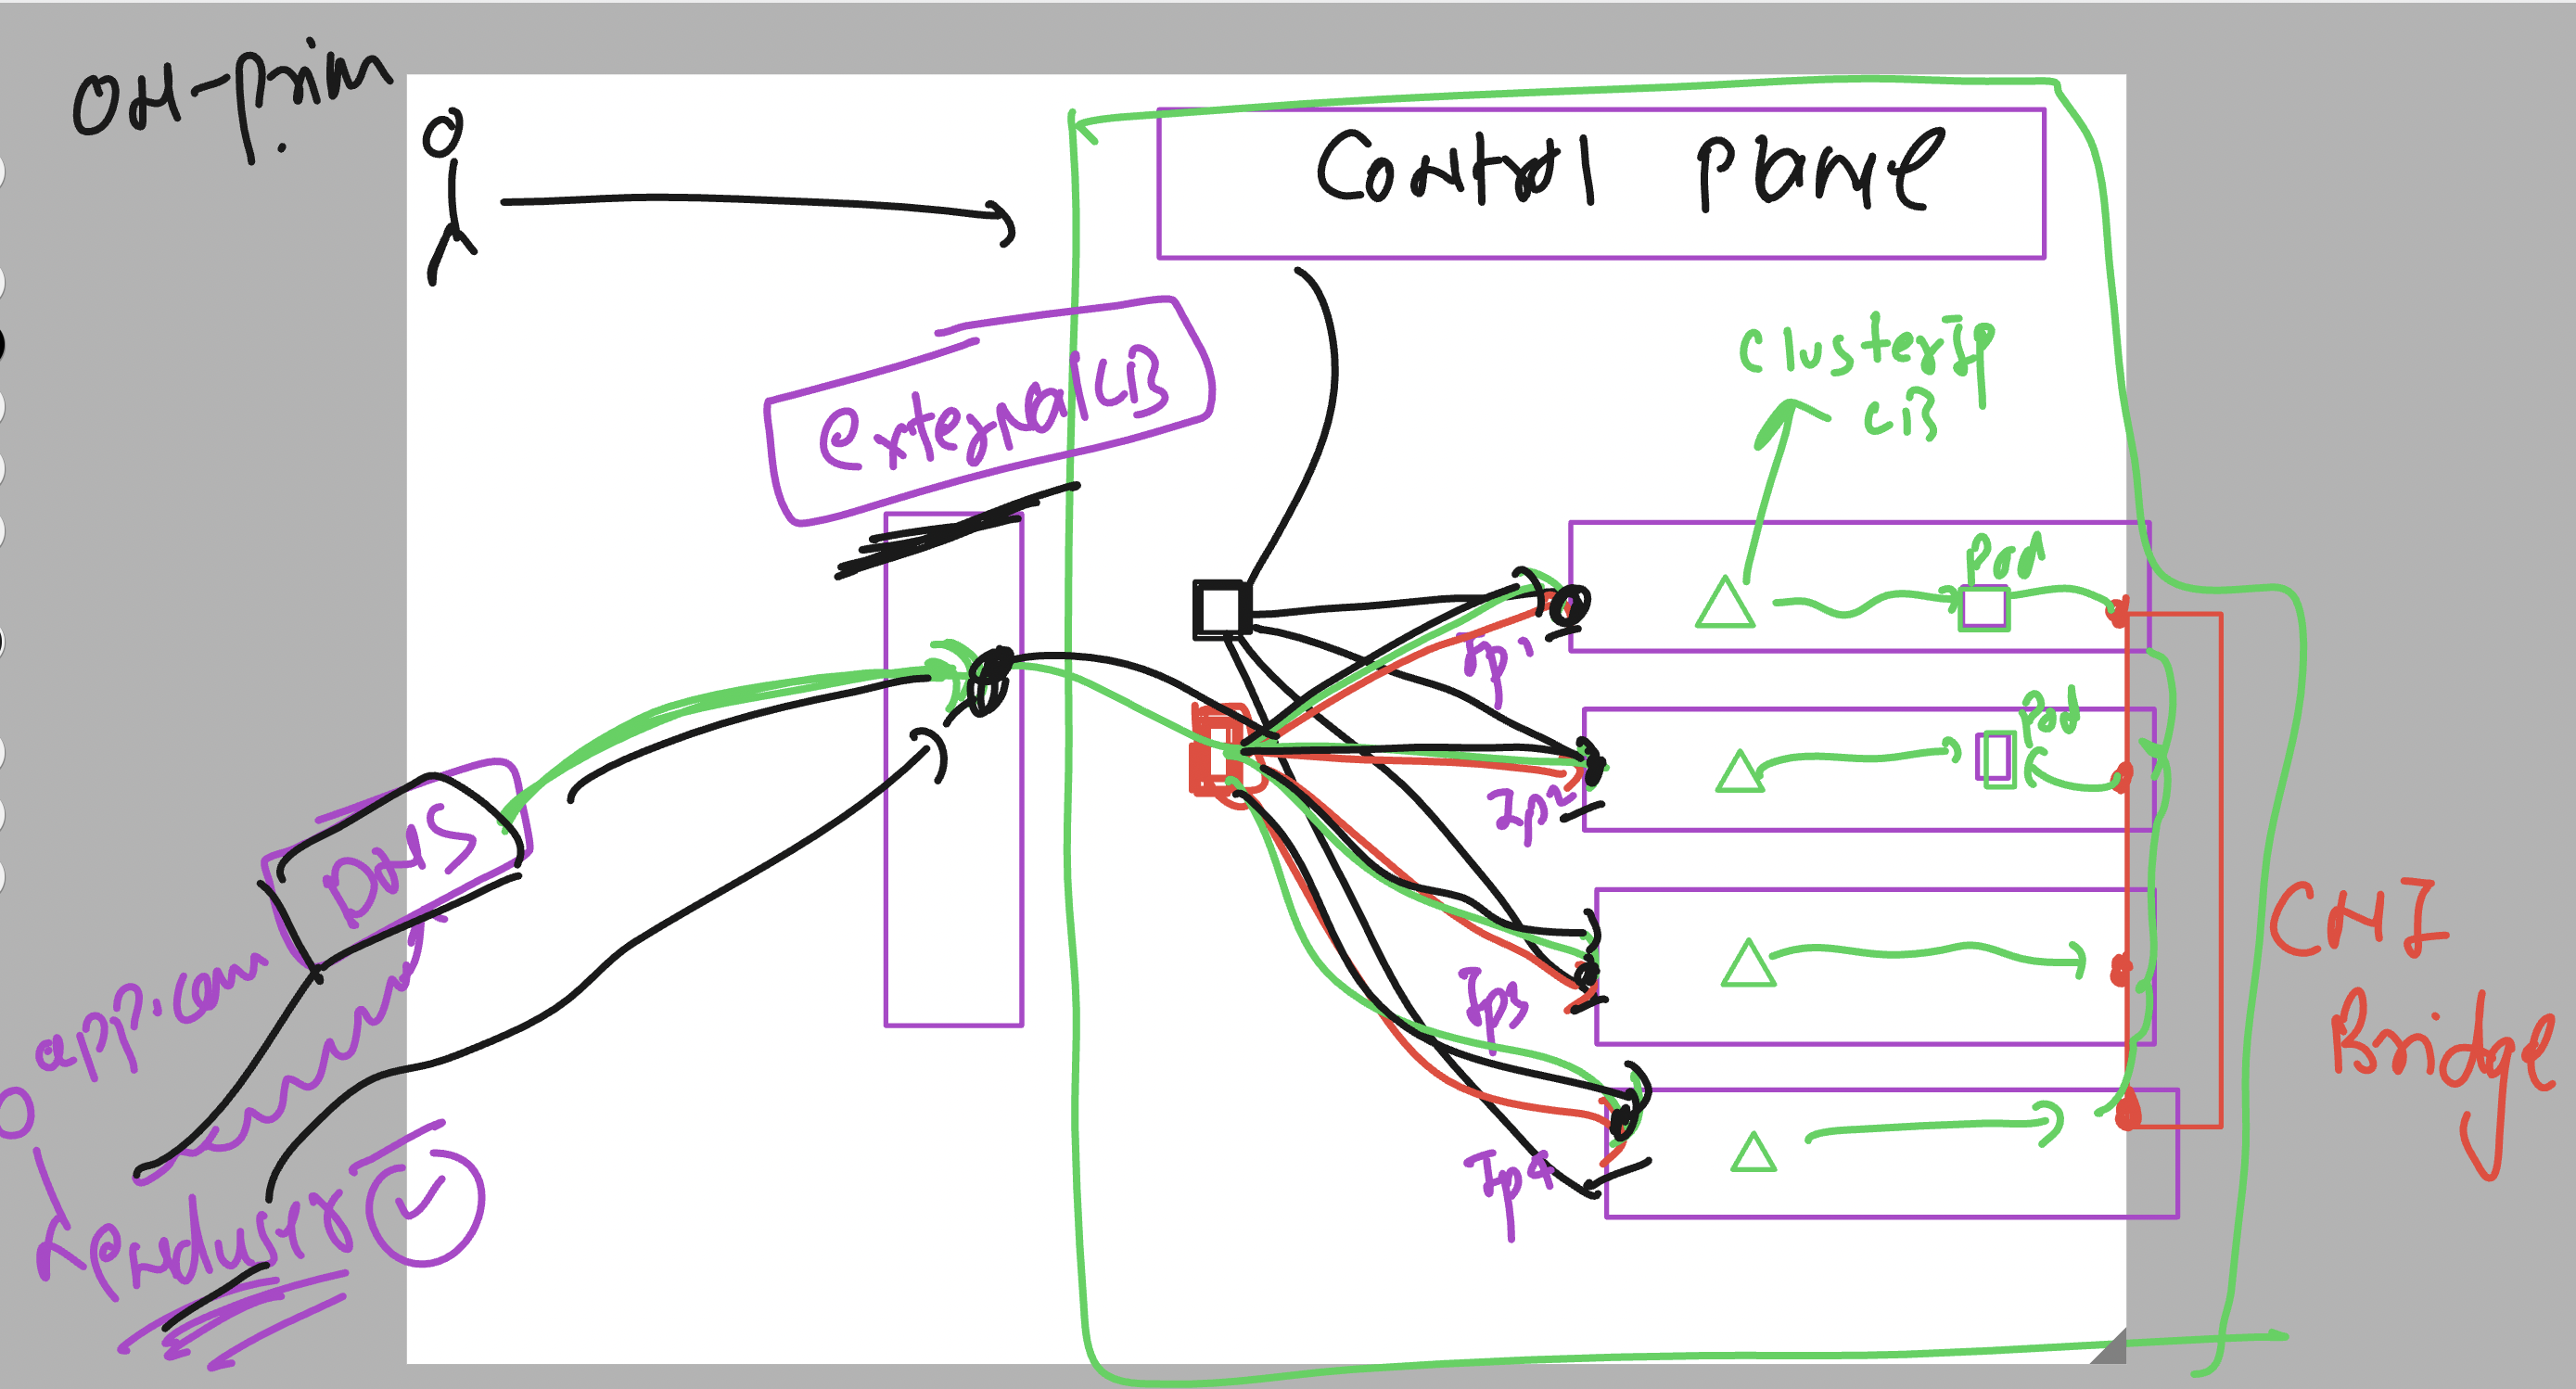 On-prim
Control Plane
External LB
ClusterIP
LB
Pod
Pod
Ip1
Ip2
Ip3
Ip4
DNS
app.com
Enduser
CNI
Bridge